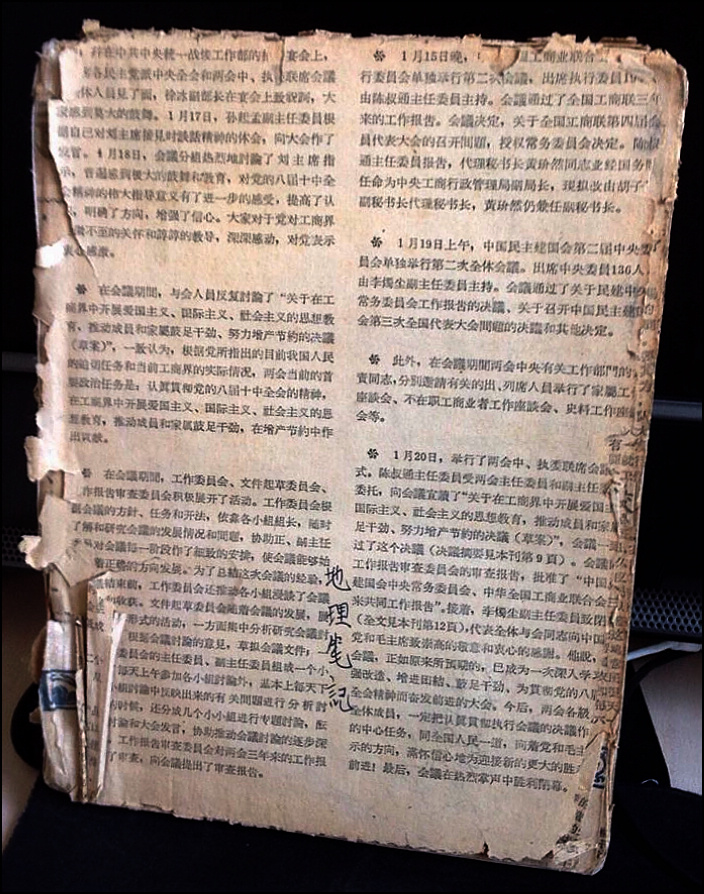 并在中共中央統一战綫工作部的 宴会上，
各民主党派中央全会和两会中、执 联席会議
体人員見了面，徐冰副部长在宴会上致祝詞，大
感到莫大的鼓舞。1月17日，孙起孟副主任委員根
自己对刘主席接見时談話精神的体会，向大会作了
发言。 月18日，会議分組热烈地討論了刘主席指
示，普遍感到极大的鼓舞和教育，对党的八届十中全
会精神的伟大指导意义有了进一步的感受，提高了认
，明确了方向，增强了信心。大家对于党对工商界
微不至的关怀和諄諄的教导，深深感动，对党表示
衷心感激。
在会議期間，与会人員反复討論了“关于在工
商界中开展爱国主义、国际主义、社会主义的思想教
育，推动成員和家屬鼓足干劲、努力增产节約的决議
（草案）”，一致认为，根据党所指出的目前我国人民
的迫切任务和当前工商界的实际情况，两会当前的首
要政治任务是：认真貫彻党的八届十中全会的精神，
在工商界中开展爱国主义、国际主义、社会主义的思
想教育，推动成員和家屬鼓足干劲，在增产节約中作
出貢献。
在会議期間，工作委員会、文件起草委員会、
工作报告审查委員会积极展开了活动。工作委員会根
据会議的方針、任务和开法，依靠各小組組长，随时
了解和研究会議的发展情况和問題，协助正、副主任
委員对会議每一阶段作了細致的安排，使会議能够始
着正确的方向发展。为了总結这次会議的經驗，
会議結束前，工作委員会还推动各小組漫談了会議
收获。文件起草委員会随着会議的发展，
形式的活动，一方面集中分析研究会議討
根据会議討論的意見，草拟会議文件；
委員会的主任委員、副主任委員組成一个小
每天上午参加各小組討論外，基本上每天下
小組討論中反映出来的有关問題进行分析討
的时候，还分成几个小小組进行专題討論，
討論和大会发言，协助推动会議討論的逐步深
。工作报告审查委員会对两会三年来的工作报
了审查，向会議提出了审查报告。
1月15日晚， 国工商业联合
行委員会单独举行第二次会議，出席执行委員
由陈叔通主任委員主持。会議通过了全国工商联三年
来的工作报告。会議决定，关于全国工商联第四届会
員代表大会的召开問題，授权常务委員会决定。陈叔
通主任委員报告，代理秘书长黄玠然同志业經国务
任命为中央工商行政管理局副局长，現拟改由胡子
副秘书长代理秘书长，黄玠然仍兼任副秘书长。
1月19日上午，中国民主建国会第二届中央委
員会单独举行第二次全体会議。出席中央委員136人，
由李烛尘副主任委員主持。会議通过了关于民建中央
常务委員会工作报告的决議、关于召开中国民主建国
会第三次全国代表大会問題的决議和其他决定。
此外，在会議期間两会中央有关工作部門的
責同志，分别邀請有关的出、列席人員举行了家屬工
座談会、不在职工商业者工作座談会、史料工作座
会等。
1月20日，举行了两会中、执委联席会議
式，陈叔通主任委員受两会主任委員和副主任
委托，向会議宣讀了“关于在工商界中开展爱国
国际主义、社会主义的思想教育，推动成員和家屬
足干劲、努力增产节約的决議（草案）”，会議一
过了这个决議（决議摘要見本刊第9頁）。会議
工作报告审查委員会的审查报告，批准了“中国
建国会中央常务委員会、中华全国工商业联合会三
来共同工作报告”。接着，李烛尘副主任委員致閉
（全文見本刊第12頁），代表全体与会同志向中国
党和毛主席致崇高的敬意和衷心的感謝。他說，
会議，正如原来所預期的，已成为一次深入学
强改造、增进团結、鼓足干劲、为貫彻党的八届
全会精神而奋发前进的大会。今后，两会各級
全体成員，一定把认真貫彻执行会議的决議作
的中心任务，同全国人民一道，向着党和毛主
示的方向，滿怀信心地为迎接新的更大的胜
前进！最后，会議在热烈掌声中胜利閉幕。
地理笔記